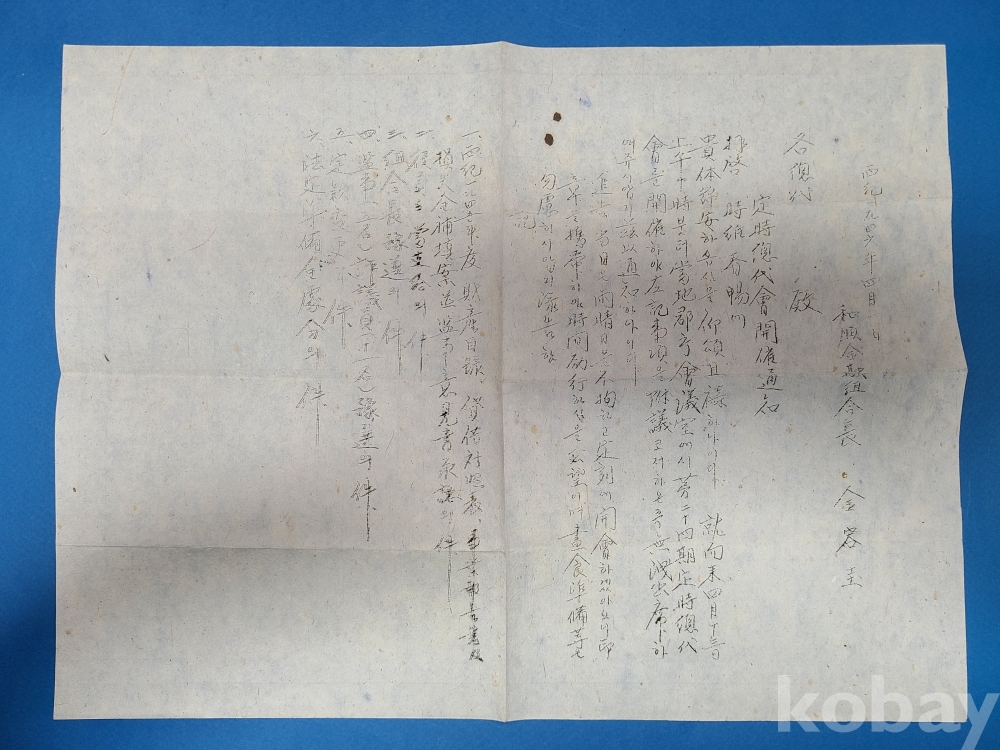 西紀一九四六年四月 日
和順金融組合長 金容圭
各總代 殿
定時總代會開催通知
拜啓 時維春暢에
貴体錦安하심을仰頌且禱하나이다 就而来四月十三日
上午十時부터當地郡廳會議室에서第二十四期定時總代
會를開催하야左記事項을附議코저하오니無漏出席하
여주시압기玆以通知하나이다
追止 當日은雨晴을不拘하고定刻에開會하겠아오니印
章을携帶하야時間励行하심을要望이며晝食準備等은
勿慮하시압기添告함
記
一、西紀一九四五年度 財産目錄、貸借対照表、事業報告書及
損失金補填案並監事意見書承認의件
二、役員의 의件
三、組合長豫選의件
四、監事(三名)評議員(十一名)豫選의件
五、定款変更의件
六、法定準備金處分의件
kobay